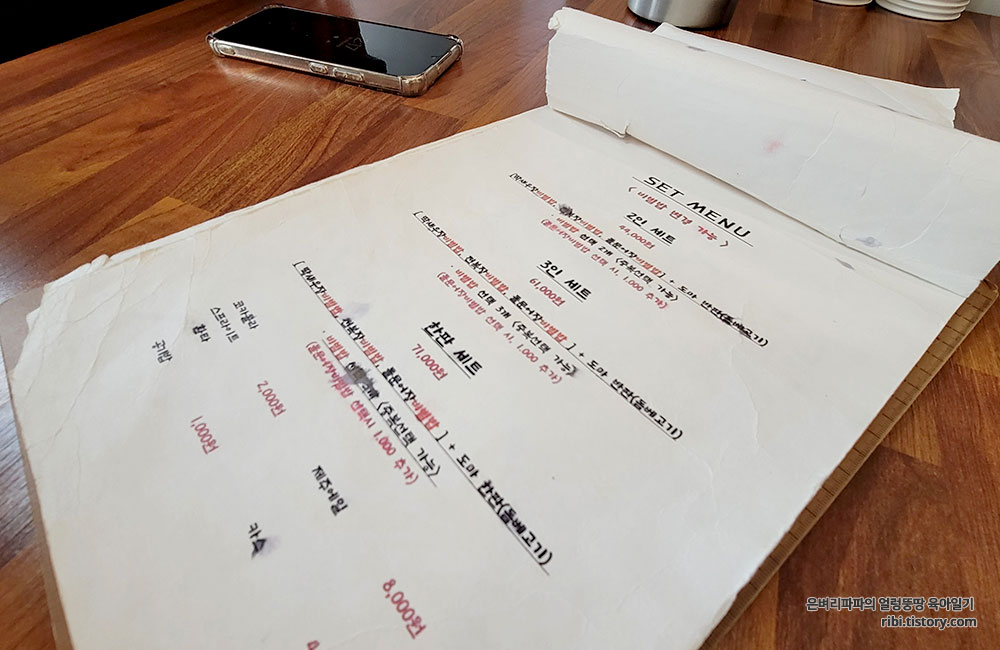 SET MENU
< 비빔밥 변경 가능 >
2인 세트
44,000원
[딱새우장비빔밥, 전복장비빔밥, 돌문어장비빔밥] + 도마 반판(돔베고기)
· 비빔밥 선택 2개 (중복선택 가능)
(돌문어장비빔밥 선택 시, 1,000 추가)
3인 세트
61,000원
[ 딱새우장비빔밥, 전복장비빔밥, 돌문어장비빔밥 ] + 도마 반판(돔베고기)
· 비빔밥 선택 3개 (중복선택 가능)
(돌문어장비빔밥 선택 시, 1,000 추가)
한판 세트
71,000원
[ 딱새우장비빔밥, 전복장비빔밥, 돌문어장비빔밥 ] + 도마 한판(돔베고기)
· 비빔밥 (중복선택 가능)
(돌문어장비빔밥 선택시 1,000 추가)
코카콜라
스프라이트
환타
2,000원
공기밥
1,000원
제주에일
8,000원
은벼리파파의 얼렁뚱땅 육아일기
ribi.tistory.com